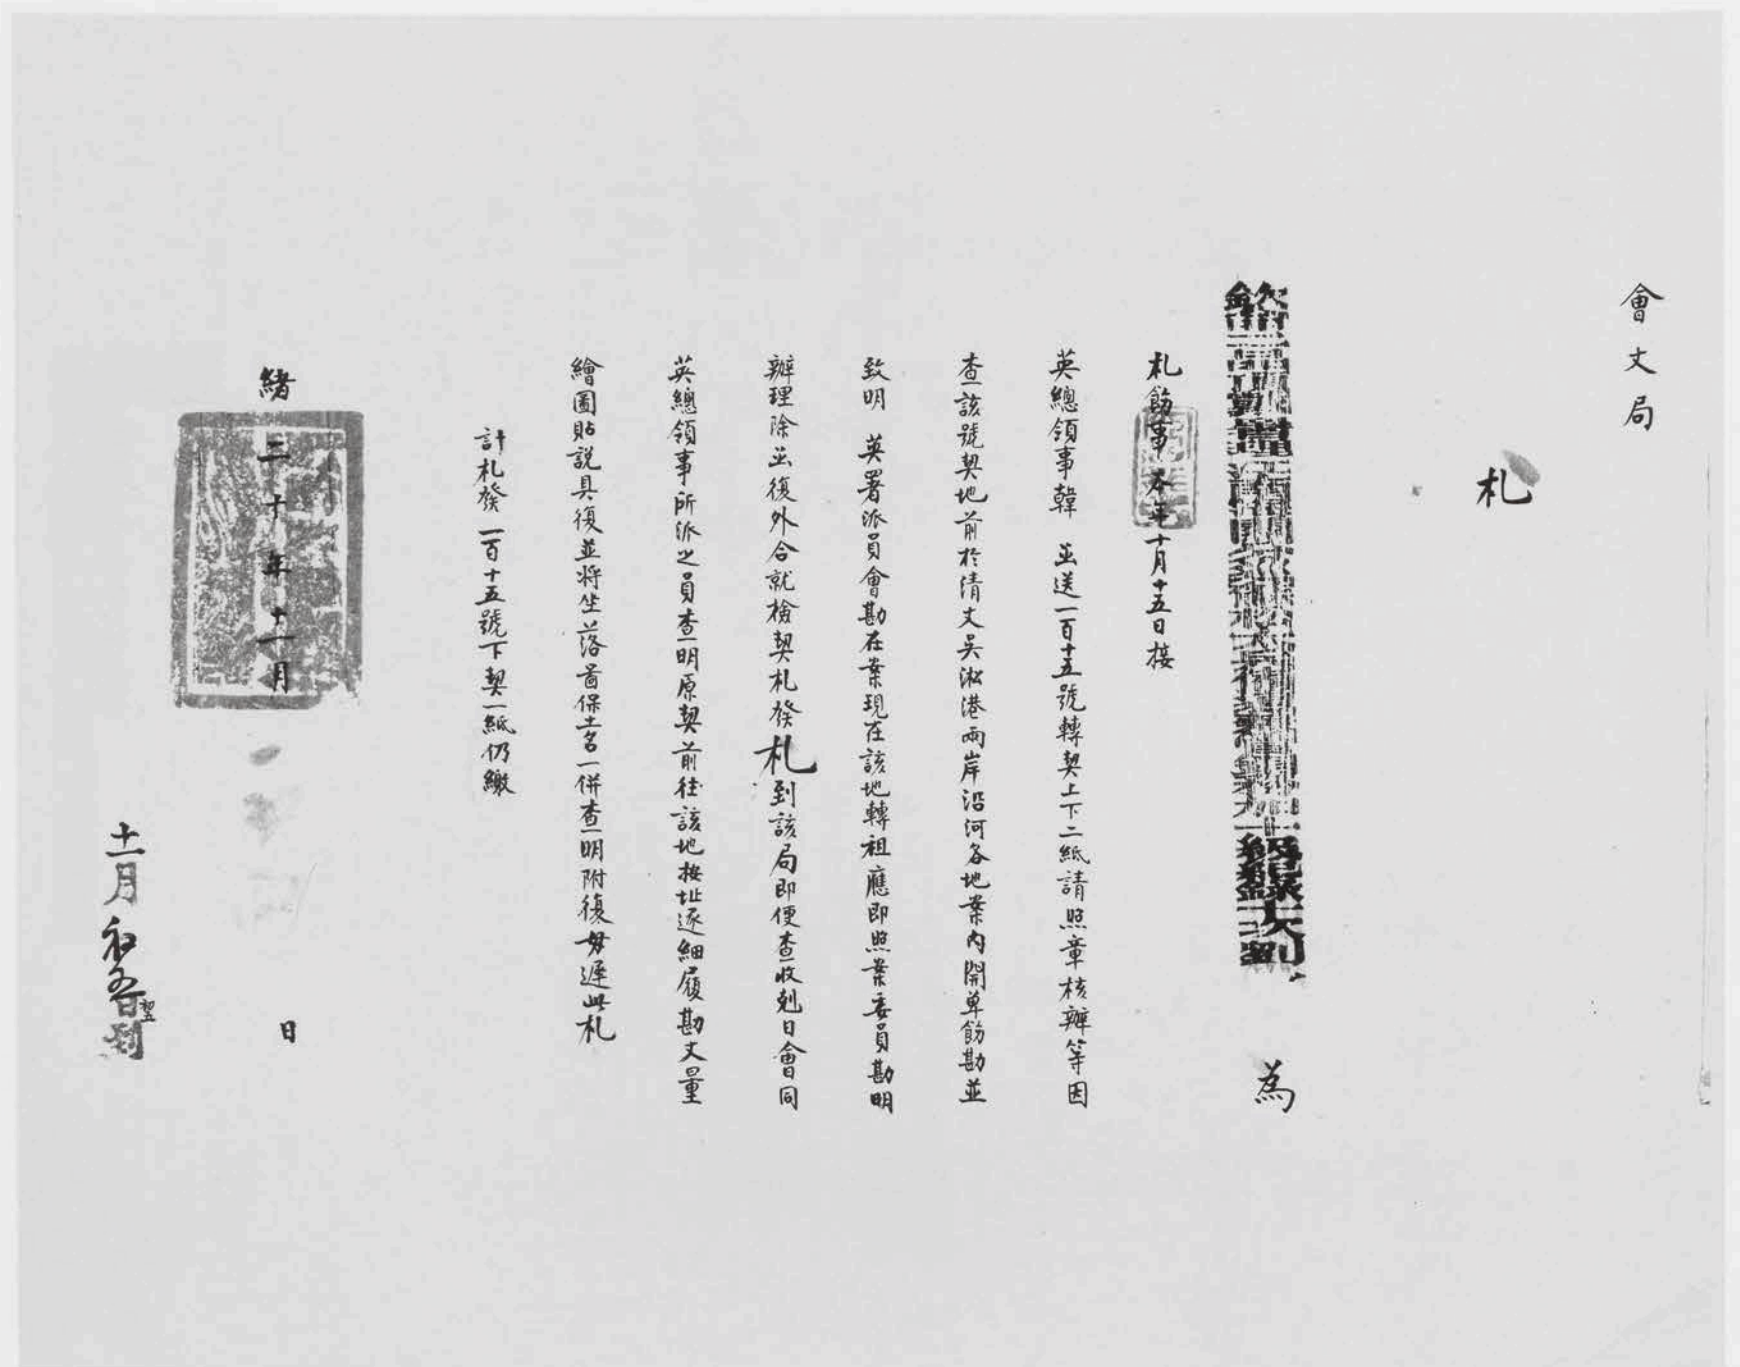 會丈局
札
為
札飭事本年十月十五日接
英總領事韓 並送一百十五號轉契上下二紙請照章核辦等因
查該號契地前於清丈吳淞港兩岸沿河各地案內開單飭勘並
致明 英署派員會勘在案現在該地轉租應即照案委員勘明
辦理除並復外合就檢契札發札到該局即便查收剋日會同
英總領事所派之員查明原契前往該地按址逐細履勘丈量
繪圖貼說具復並將坐落啚保土名一併查明附復毋遲此札
計札發一百十五號下契一紙仍繳
緒 三十年十一月 日
十一月初五日到